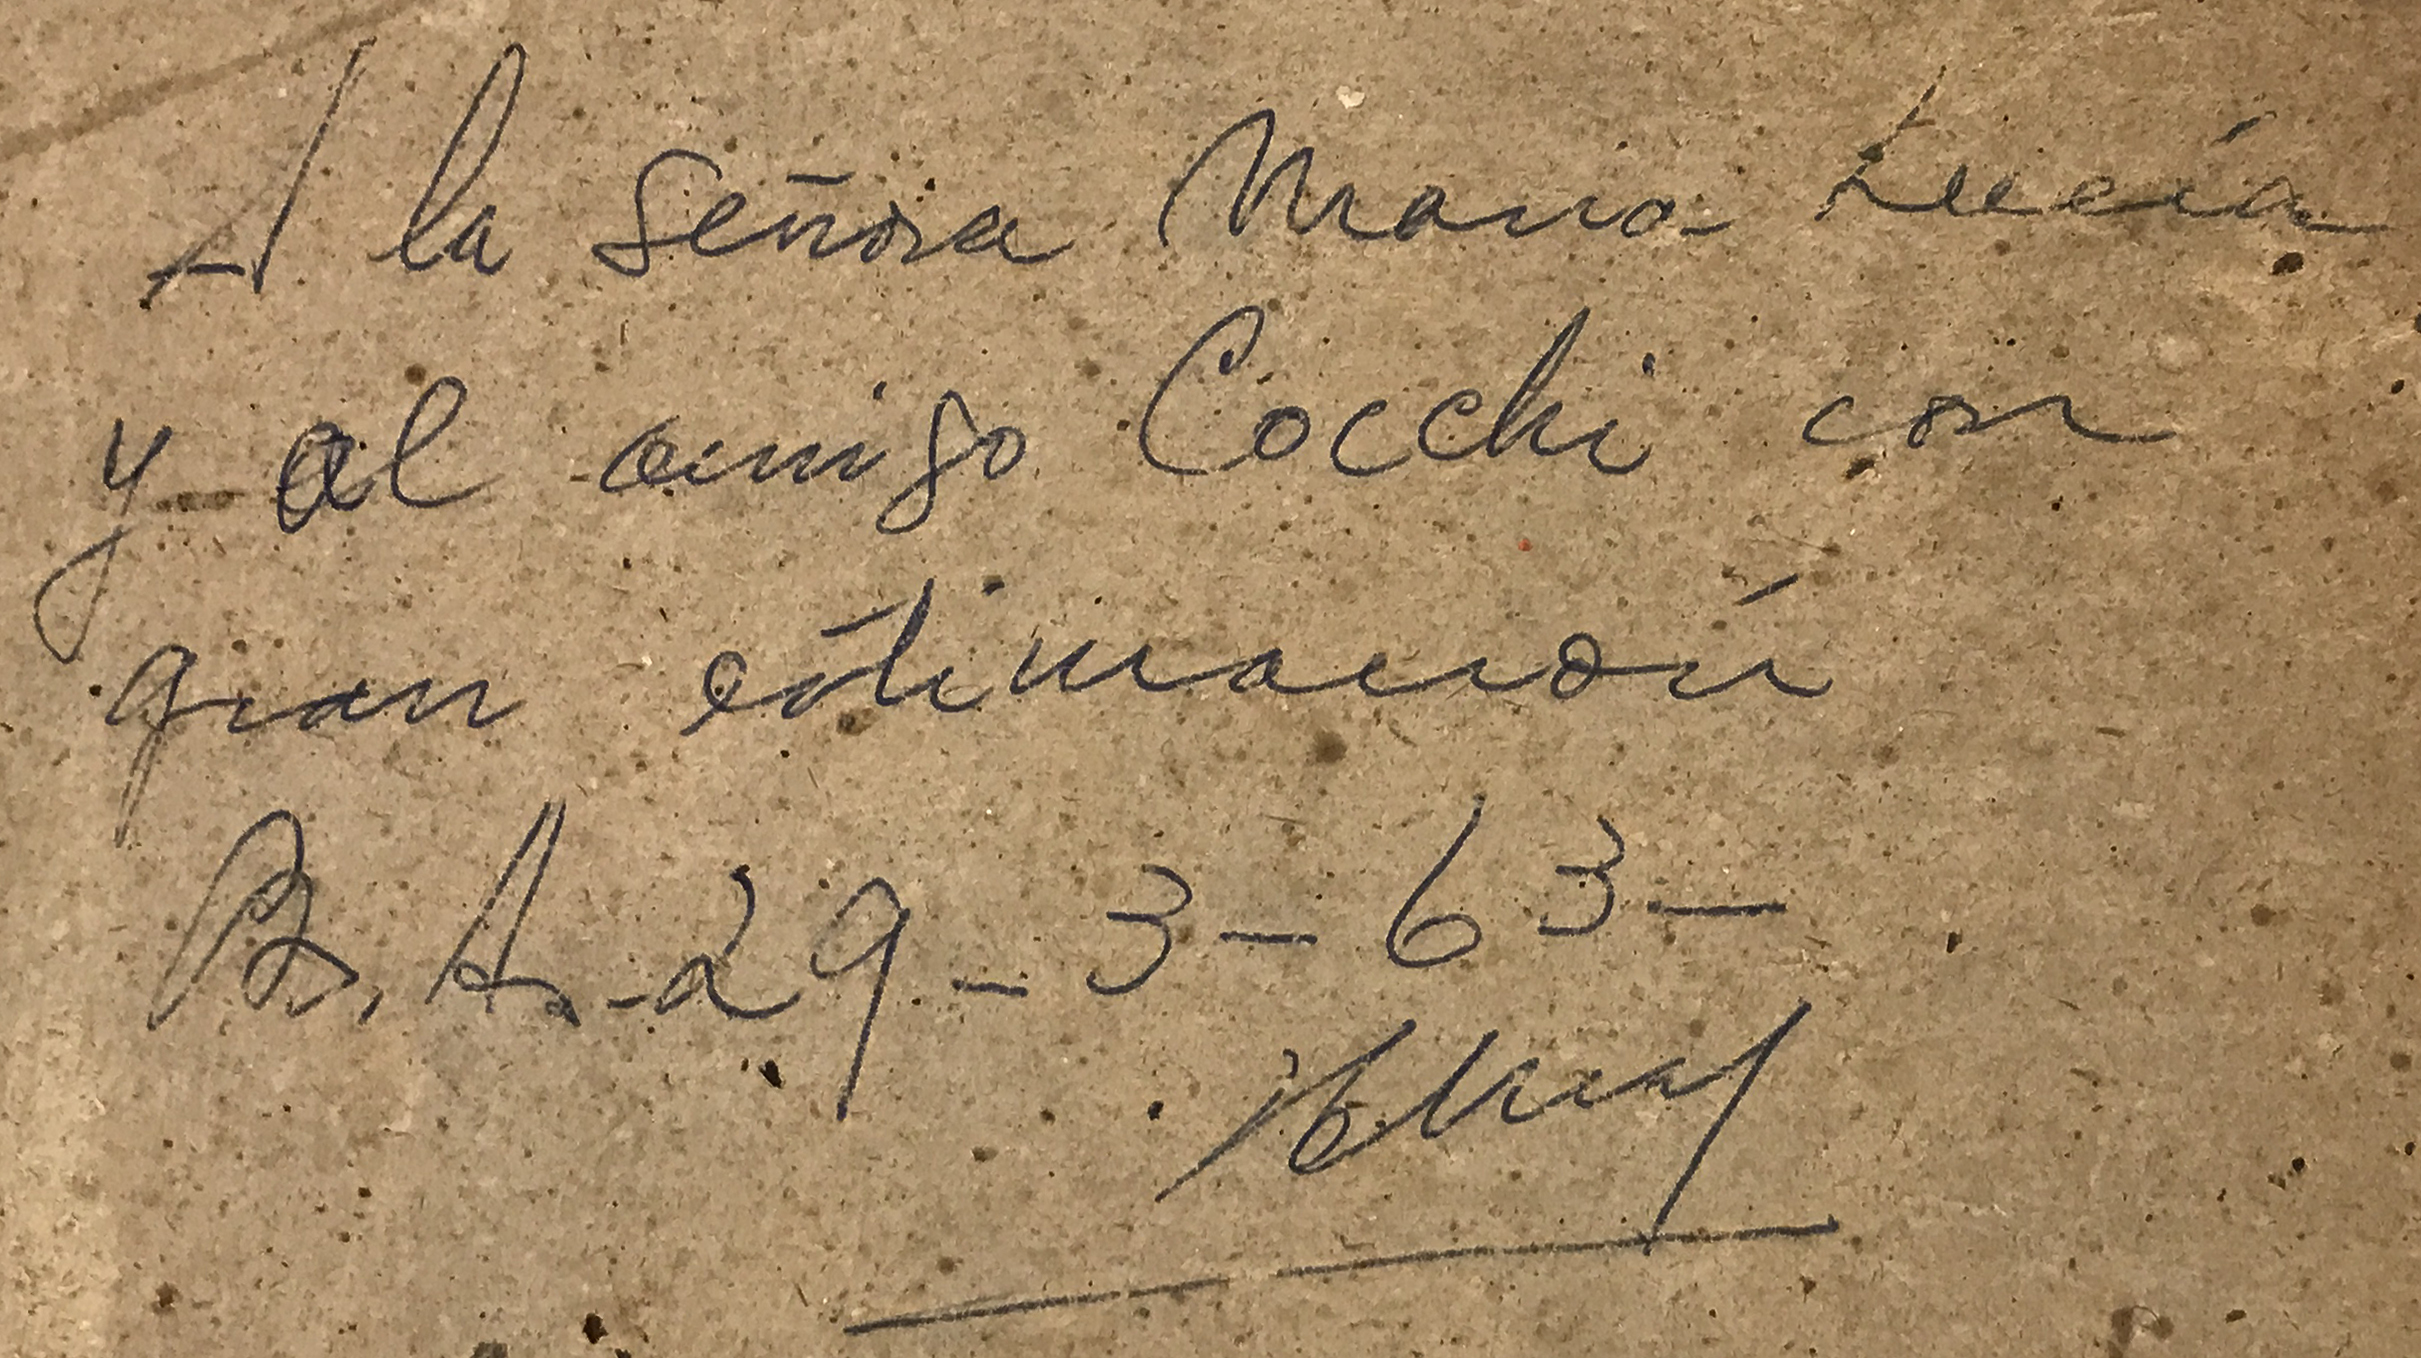 A la señora Maria Lucía
y al amigo Cocchi con
gran estimación
B. A. - 29 - 3 - 63 -